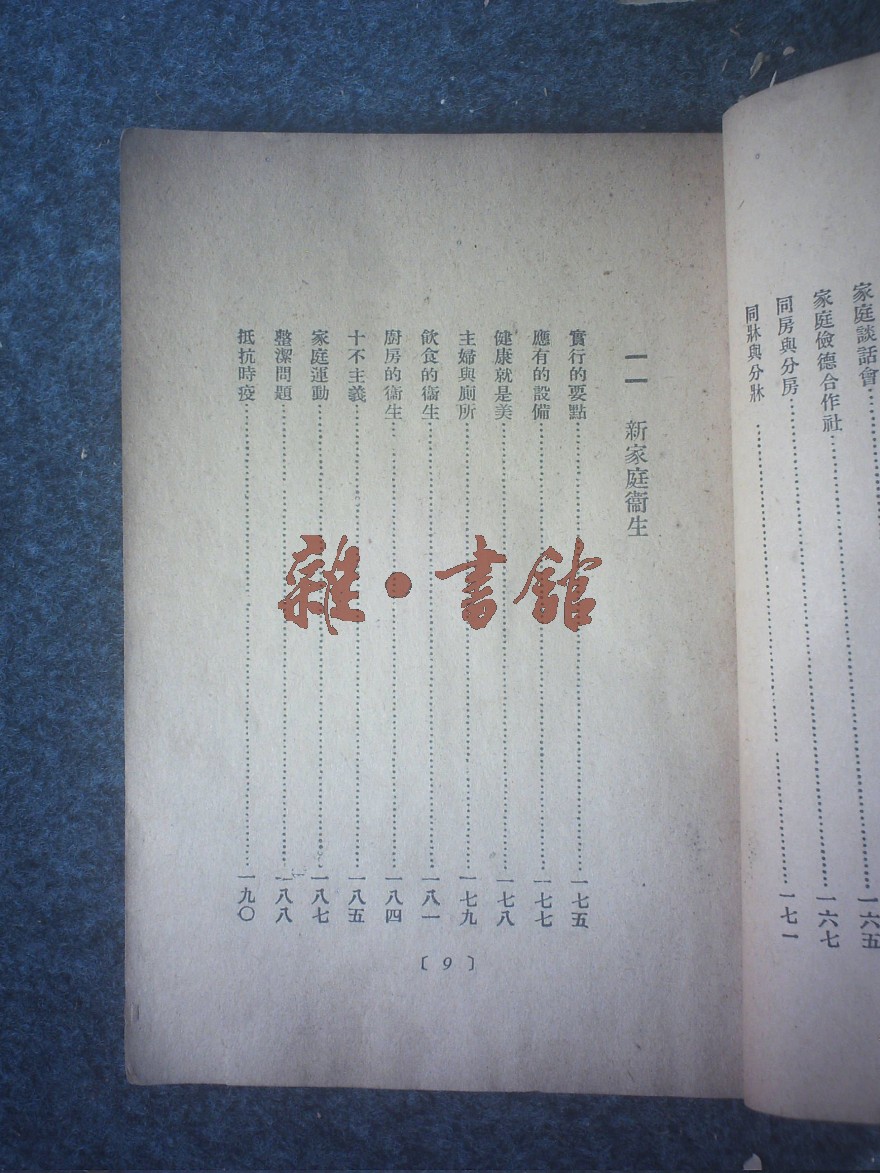 家庭談話會……一六五
家庭儉德合作社……一六七
同房與分房……一七一
同牀與分牀……
一一 新家庭衞生
實行的要點……一七五
應有的設備……一七七
健康就是美……一七八
主婦與廁所……一七九
飲食的衞生……一八一
厨房的衞生……一八四
十不主義……一八五
家庭運動……一八七
整潔問題……一八八
抵抗時疫……一九〇
〔9〕
雜·書館